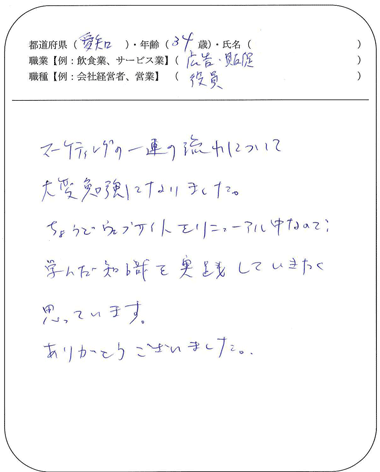 都道府県(愛知)・年齢(34歳)・氏名( )
職業【例:飲食業、サービス業】(広告・販促)
職種【例:会社経営者、営業】(役員)
マーケティングの一連の流れについて
大変勉強になりました。
ちょうどウェブサイトをリニューアル中なので、
学んだ知識を実践していきたく
思っています。
ありがとうございました。